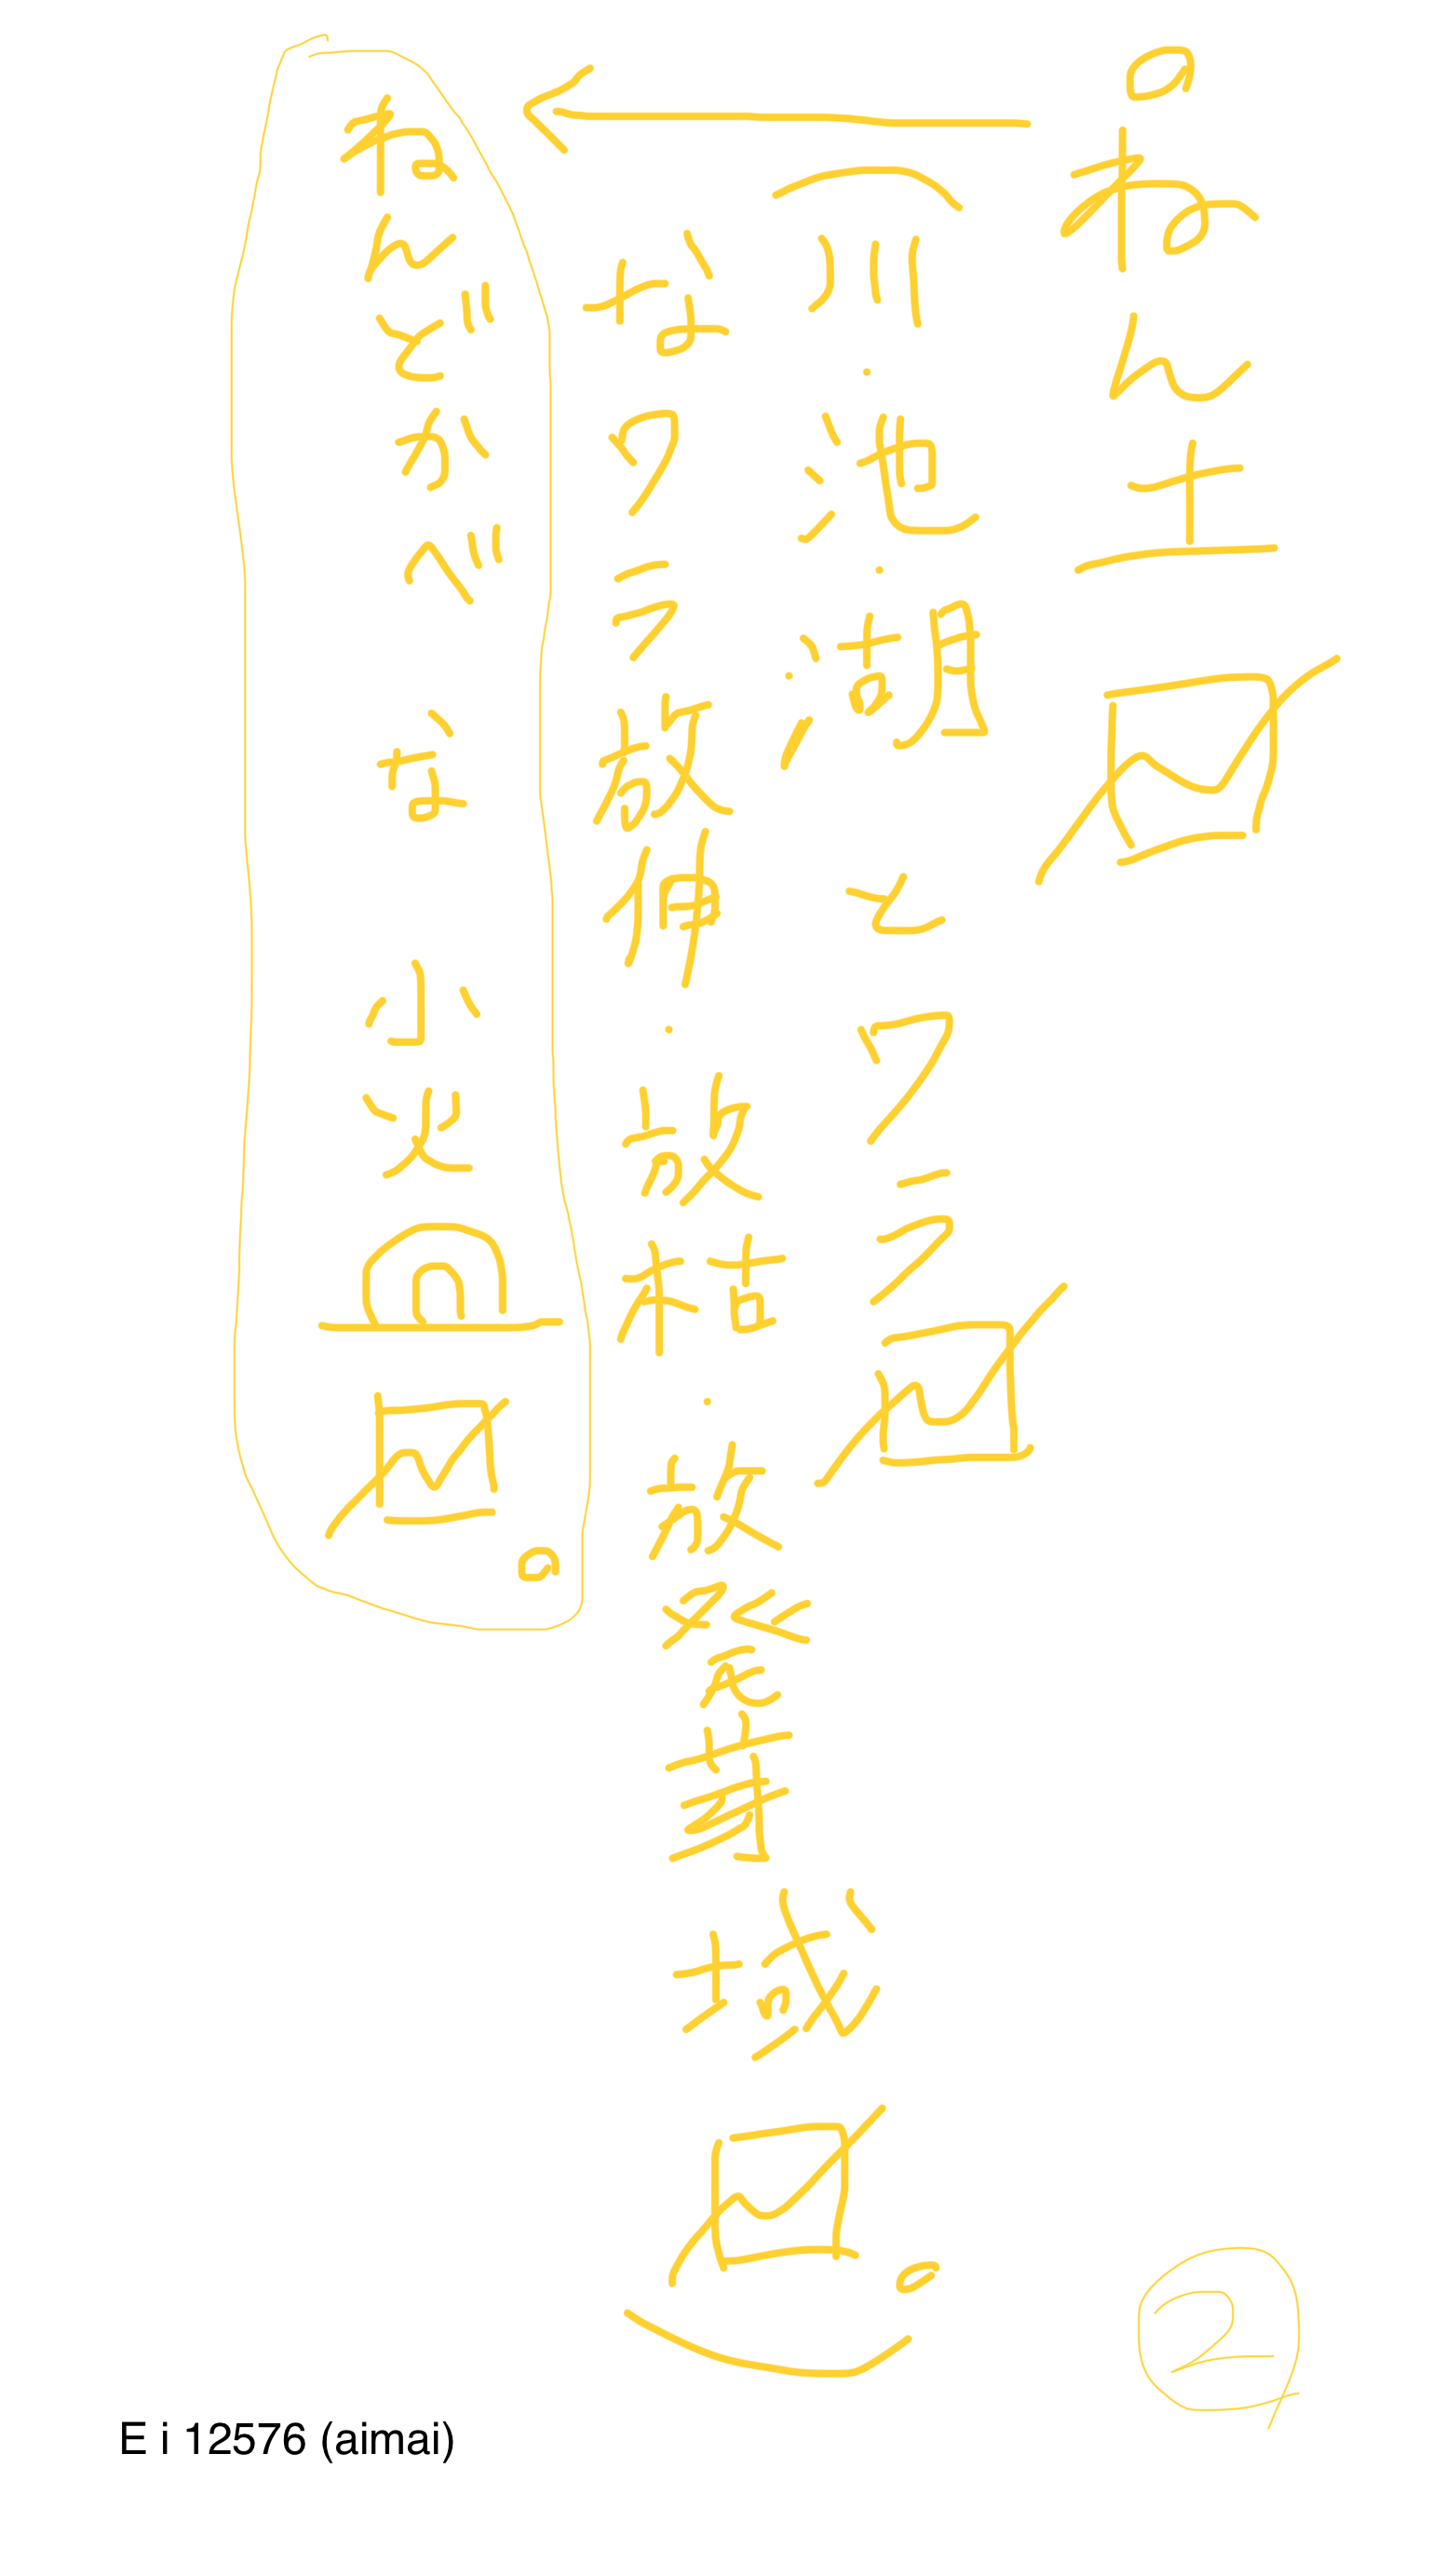 ねん土
(川・池・湖とワラ
なワラ放伸・放枯・放発芽域。)
ねんどかべな小火。
②
E i 12576 (aimai)